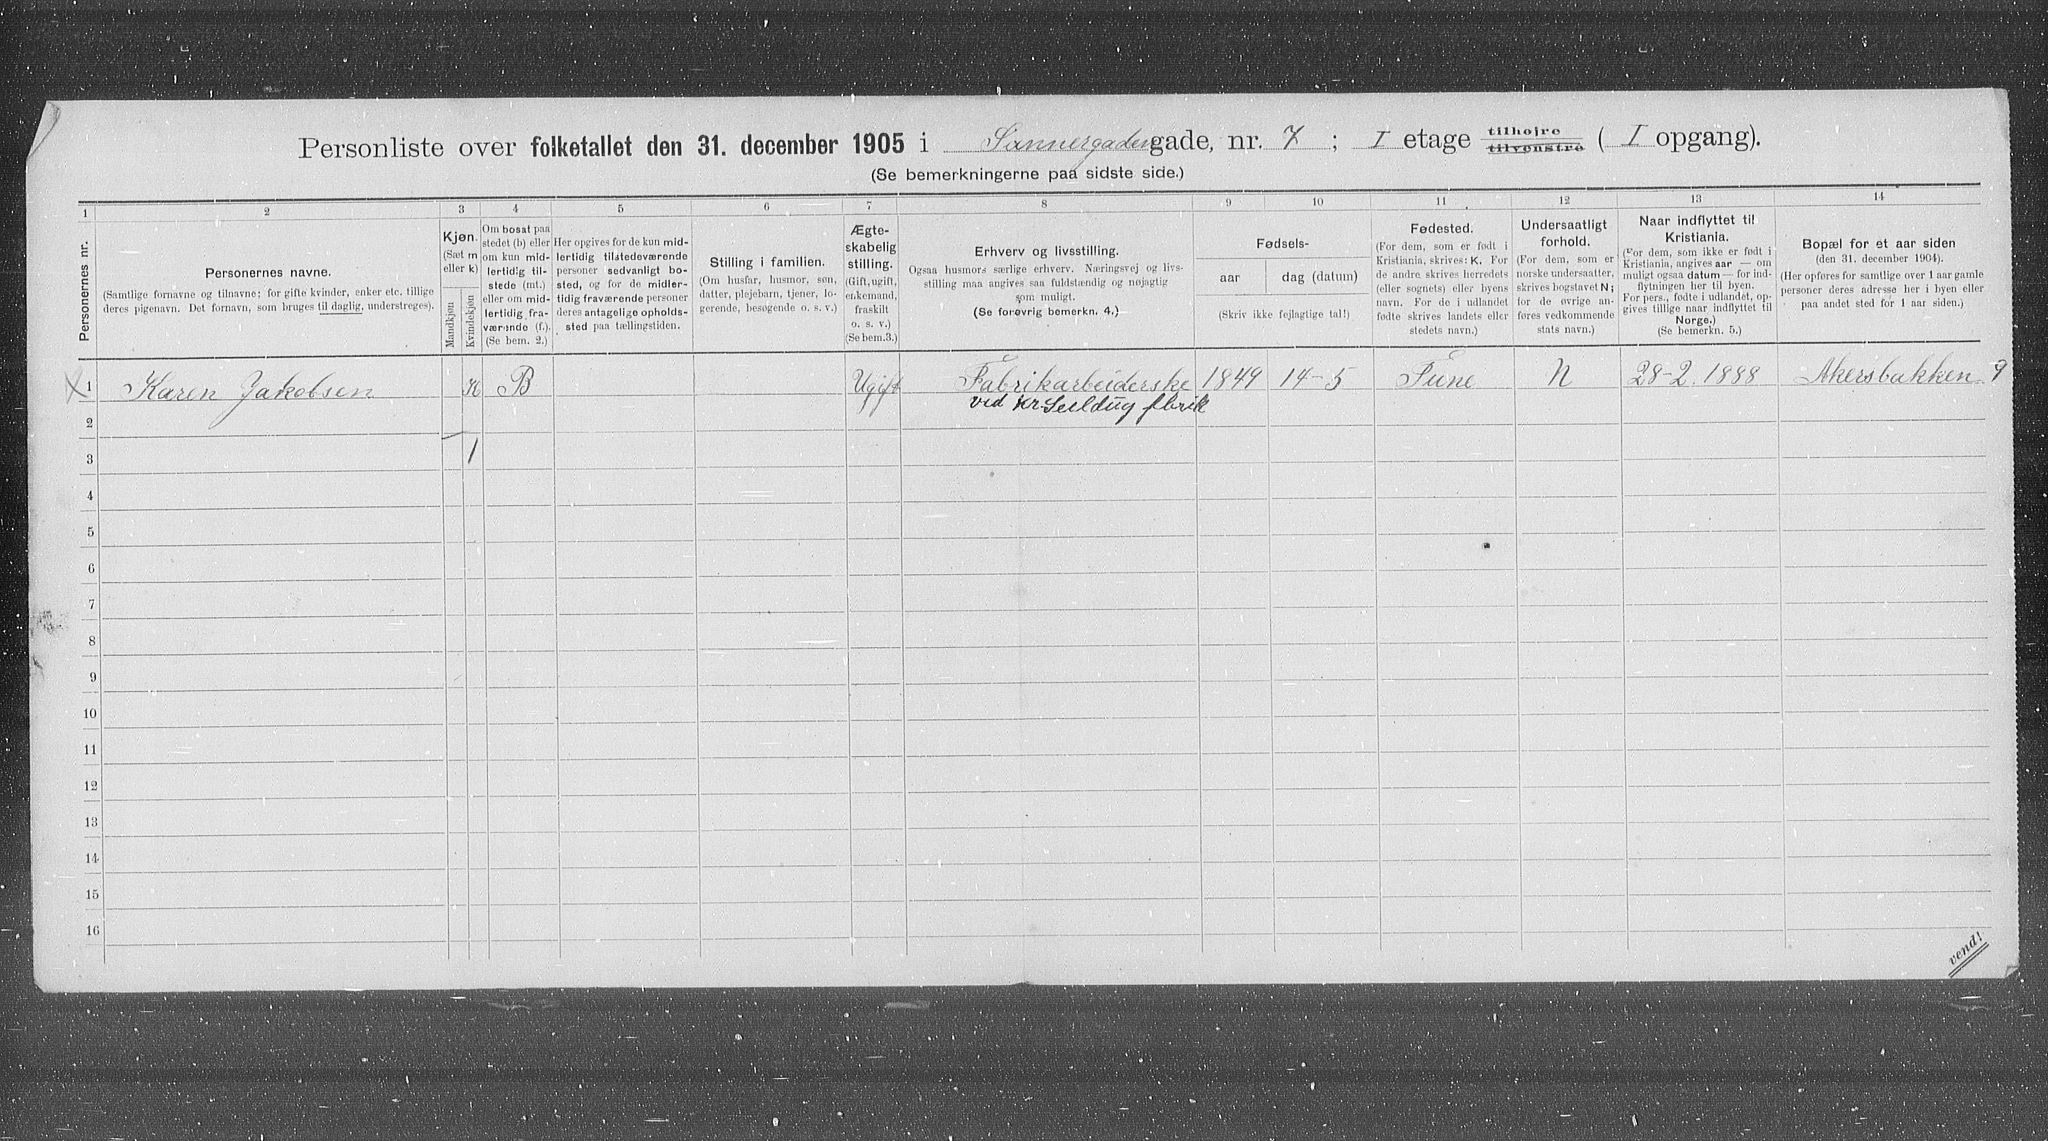 Personliste over folketallet den 31. december 1905 i Sannergadengade, nr. 7; I etage tilhøjre tilvenstre ( I opgang).
(Se bemerkningerne paa sidste side.)
1 2 3 4 5 6 7 8 9 10 11 12 13 14
Personernes nr.
Personernes navne.
(Samtlige fornavne og tilnavne; for gifte kvinder, enker etc. tillige
deres pigenavn. Det fornavn, som bruges til daglig, understreges).
Kjøn.
(Sæt m
eller k)
Mandkjøn
Kvindekjøn
Om bosat paa
stedet (b) eller
om kun mid-
lertidig til-
stede (mt.)
eller om mid-
lertidig fra-
værende (f.).
(Se bem. 2.)
Her opgives for de kun mid-
lertidig tilstedeværende
personer sedvanligt bo-
sted, og for de midler-
tidig fraværende personer
deres antagelige opholds-
sted paa tællingstiden.
Stilling i familien.
(Om husfar, husmor, søn,
datter, plejebarn, tjener, lo-
gerende, besøgende o. s. v.)
Ægte-
skabelig
stilling.
(Gift, ugift,
enkemand,
fraskilt
o. s. v.)
(Se bem. 3.)
Erhverv og livsstilling.
Ogsaa husmors særlige erhverv. Næringsvej og livs-
stilling maa angives saa fuldstændig og nøjagtig
som muligt.
(Se forøvrig bemerkn. 4.)
Fødsels-
aar
dag (datum)
(Skriv ikke fejlagtige tal!)
Fødested.
(For dem, som er født i
Kristiania, skrives: K. For
de andre skrives herredets
(eller sognets) eller byens
navn. For de i udlandet
fødte skrives landets eller
stedets navn.)
Undersaatligt
forhold.
(For dem, som er
norske undersaatter,
skrives bogstavet N;
for de øvrige an-
føres vedkommende
stats navn.)
Naar indflyttet til
Kristiania.
(For dem, som ikke er født i
Kristiania, angives aar — om
muligt ogsaa datum — for ind-
flytningen her til byen.
For pers., fødte i udlandet, op-
gives tillige naar indflyttet til
Norge.)
(Se bemerkn. 5.)
Bopæl for et aar siden
(den 31. december 1904).
(Her opføres for samtlige over 1 aar gamle
personer deres adresse her i byen eller
paa andet sted for 1 aar siden.)
1 Karen Jakobsen K B Ugift Fabrikarbeiderske 1849 14-5 N 28-2. 1888 Akersbakken 9
ved Kr Seildug fbrik
2
3 1
4
5
6
7
8
9
10
11
12
13
14
15
16
vend!